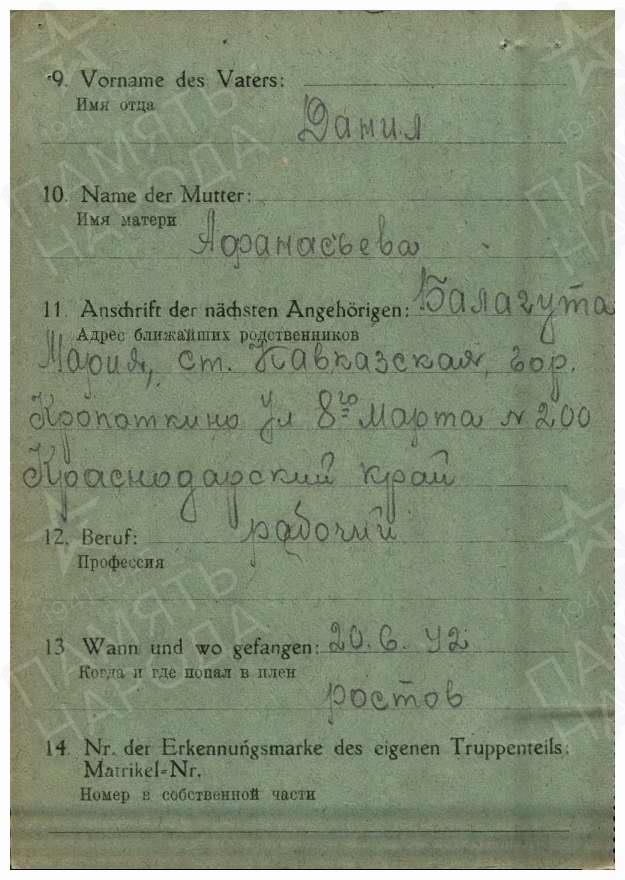 9. Vorname des Vaters:
Имя отца
Данил
10. Name der Mutter:
Имя матери
Афанасьева
11. Anschrift der nächsten Angehörigen: Балагута
Адрес ближайших родственников
Мария, ст. Кавказская, гор.
Кропоткино ул 8го Марта № 200
Краснодарский край
рабочий
12. Beruf:
Профессия
13 Wann und wo gefangen: 20.6.42
Когда и где попал в плен
ростов
14. Nr. der Erkennungsmarke des eigenen Truppenteils:
Matrikel-Nr.
Номер в собственной части
ПАМЯТЬ
НАРОДА